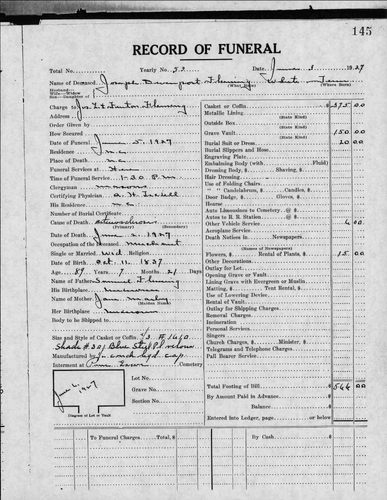 145
RECORD OF FUNERAL
Total No. Yearly No. 52 Date June 3 1927
Name of Deceased Joseph Davenport Fleming White Tenn.
Husband— Wife—Widow Son—Daughter of (What Race) (Where Born)
Charge to Jos. F. & Fenton Fleming
Address
Order Given by
How Secured
Date of Funeral June 5, 1927
Residence
Place of Death N.C.
Funeral Services at Home
Time of Funeral Service 1-30 P.M.
Clergyman masons
Certifying Physician
His Residence N.C.
Number of Burial Certificate
Cause of Death
(Primary) (Secondary)
Date of Death June 2, 1927
Occupation of the Deceased merchant
Single or Married Wid Religion
Date of Birth Oct. 11, 1839
Age 87 Years 7 Months 21 Days
Name of Father Samuel Fleming
His Birthplace unknown
Name of Mother Jane
(Maiden Name)
Her Birthplace unknown
Body to be Shipped to
Size and Style of Casket or Coffin
Shade # 301 Blue
Manufactured by
Interment at Pine Lawn Cemetery
Lot No.
Grave No.
Section No.
June 6, 1927
Diagram of Lot or Vault
Casket or Coffin $ 375 00
Metallic Lining
(State Kind)
Outside Box
(State Kind)
Grave Vault 150 00
(State Kind)
Burial Suit or Dress 20 00
Burial Slippers and Hose
Engraving Plate
Embalming Body (with Fluid)
Dressing Body, $ Shaving, $
Hair Dressing
Use of Folding Chairs
" " Candelabrum, $ Candles, $
Door Badge, $ Gloves, $
Hearse
Auto Limousines to Cemetery @ $
Autos to R. R. Station @ $
Other Vehicle Service 4 00
Aeroplane Service
Death Notices in Newspapers
(Names of Newspapers)
Flowers, $ Rental of Plants, $ 15 00
Other Decorations
Outlay for Lot
Opening Grave or Vault
Lining Grave with Evergreen or Muslin
Matting, $ Tent Rental, $
Use of Lowering Device
Rental of Vault
Outlay for Shipping Charges
Removal Charges
Incineration
Personal Services
Singers
Church Charges, $ Minister, $
Telegrams and Telephone Charges
Pall Bearer Service
Total Footing of Bill $ 564 00
By Amount Paid in Advance $
Balance $
Entered into Ledger, page or below
To Funeral Charges Total, $ By Cash $